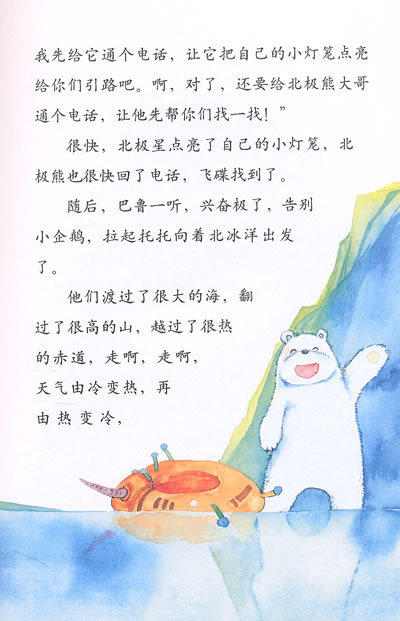 我先给它通个电话，让它把自己的小灯笼点亮
给你们引路吧。啊，对了，还要给北极熊大哥
通个电话，让他先帮你们找一找！”
很快，北极星点亮了自己的小灯笼，北
极熊也很快回了电话，飞碟找到了。
随后，巴鲁一听，兴奋极了，告别
小企鹅，拉起托托向着北冰洋出发
了。
他们渡过了很大的海，翻
过了很高的山，越过了很热
的赤道，走啊，走啊，
天气由冷变热，再
由热变冷，